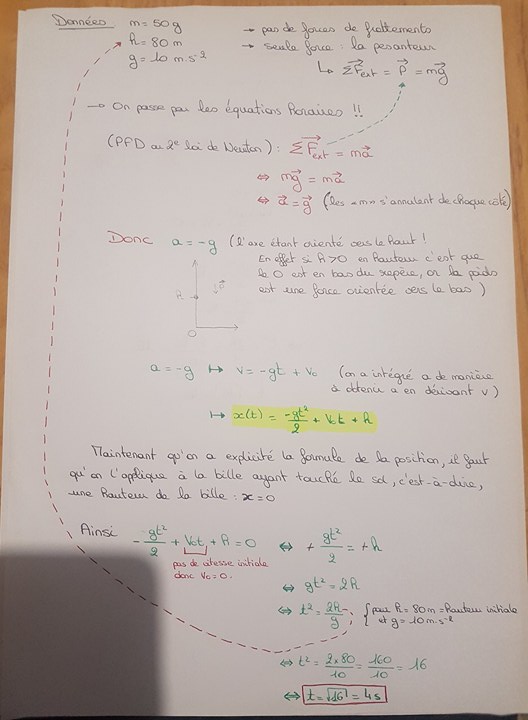 Données
m = 50 g
h = 80 m
g = 10 m.s⁻²
→ pas de forces de frottements
→ seule force : la pesanteur
↳ ΣF⃗ext = P⃗ = mg⃗
→ On passe par les équations horaires !!
(PFD ou 2ᵉ loi de Newton) : ΣF⃗ext = ma⃗
⇔ mg⃗ = ma⃗
⇔ a⃗ = g⃗ (les «m» s'annulent de chaque côté)
Donc a = -g (l'axe étant orienté vers le haut !
En effet si h > 0 en hauteur c'est que
le 0 est en bas du repère, or la poids
est une force orientée vers le bas)
h
P⃗
O
a = -g ↦ v = -gt + V₀ (on a intégré a de manière
à obtenir a en dérivant v)
↦ x(t) = -gt²/2 + V₀t + h
Maintenant qu'on a explicité la formule de la position, il faut
qu'on l'applique à la bille ayant touché le sol, c'est-à-dire,
une hauteur de la bille : x = 0
Ainsi -gt²/2 + V₀t + h = 0 ⇔ + gt²/2 = +h
pas de vitesse initiale
donc V₀ = 0.
⇔ gt² = 2h
⇔ t² = 2h/g { pour h = 80 m = hauteur initiale
et g = 10 m.s⁻²
⇔ t² = 2×80/10 = 160/10 = 16
⇔ t = √16 = 4s